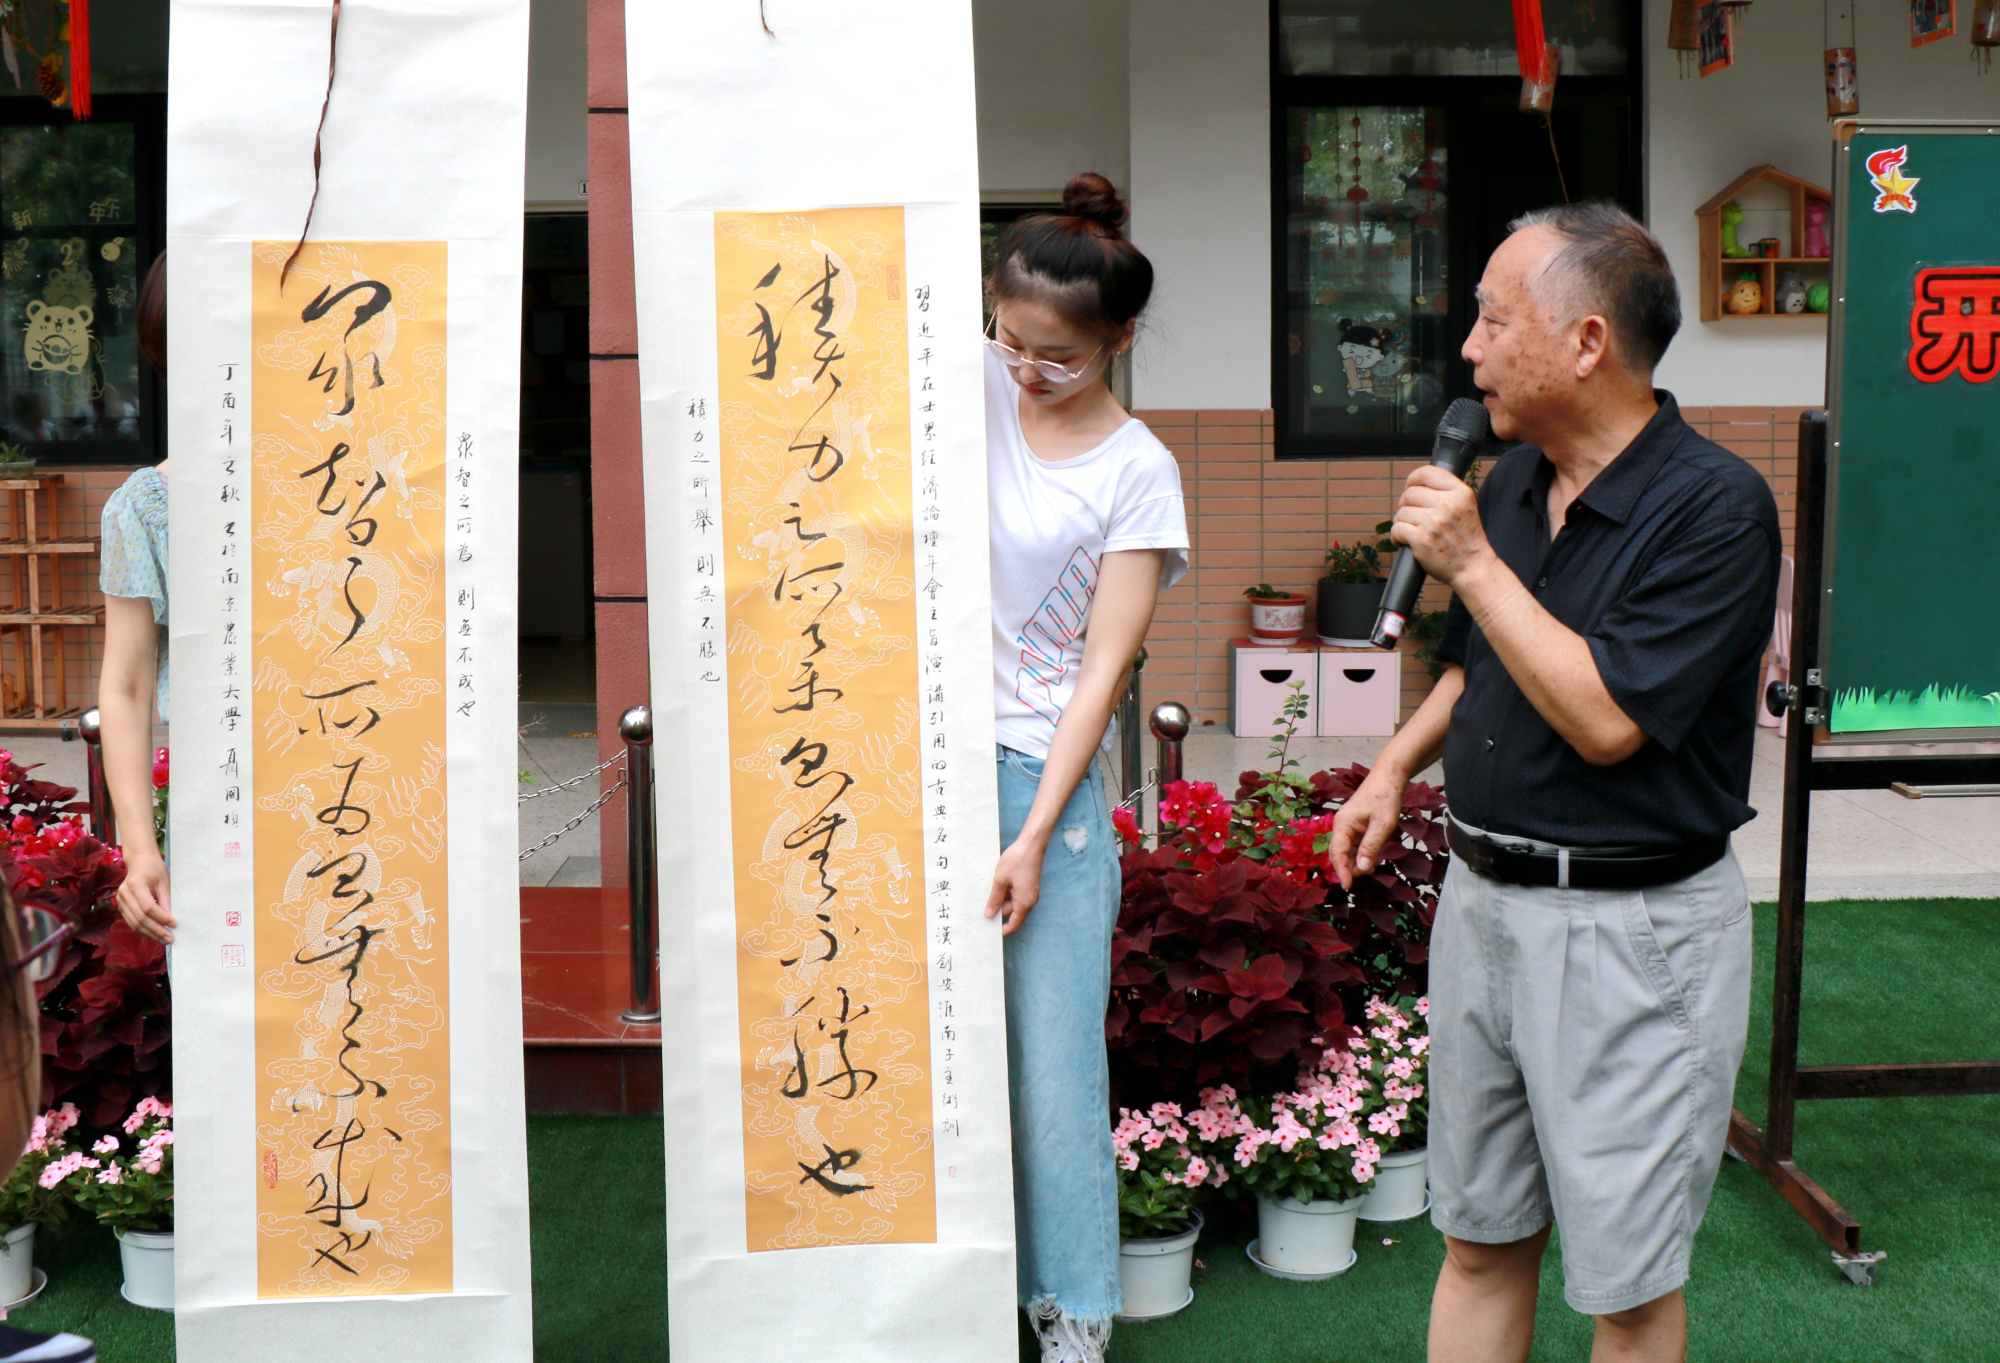 習近平在世界經濟論壇年會主旨演講引用的古典名句典出漢劉安淮南子主術訓
積力之所舉則無不勝也
積力之所舉則無不勝也
眾智之所為則無不成也
眾智之所為則無不成也
丁酉年之秋書於南京農業大學聶國楨
PINODA
开